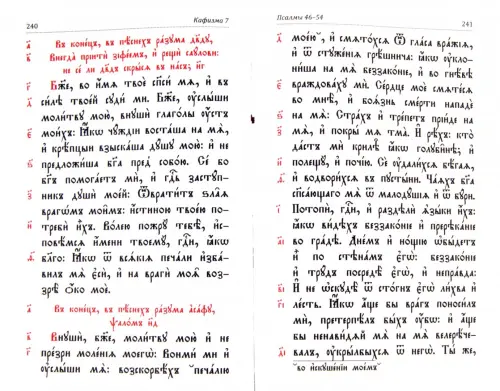 240 Кафизма 7
а҃ Въ коне́цъ, въ пѣ́снехъ ра́зѹма дв҃дѹ,
в҃ Внегда̀ прїитѝ зїфе́ємъ, и҆ рещѝ саѹ́лови:
не сѐ ли дв҃дъ скры́сѧ въ на́съ; нг҃
г҃ Бж҃е, во и҆́мѧ твоѐ спⷭ҇и́ мѧ, и҆ въ
д҃ си́лѣ твое́й сѹдѝ мѝ. Бж҃е, ѹ҆слы́ши
моли́твѹ мою̀, внѹшѝ глаго́лы ѹ҆́стъ
є҃ мои́хъ. Ꙗ҆́кѡ чѹ́ждїи воста́ша на мѧ̀,
и҆ крѣ́пцыи взыска́ша дѹ́шѹ мою̀: и҆ не
ѕ҃ предложи́ша бг҃а пред̾ собо́ю. Се́ бо
бг҃ъ помога́етъ мѝ, и҆ гдⷭ҇ь застѹ́пникъ
з҃ дѹшѝ мое́й. Ѿврати́тъ ѕла̑ѧ
врагѡ́мъ мои̑мъ: и҆́стиною твое́ю потребѝ
и҃ и҆̀хъ. Во́лею пожрѹ̀ тебѣ̀,
и҆сповѣ́мсѧ и҆́мени твоемѹ̀, гдⷭ҇и, ꙗ҆́кѡ
ѳ҃ бл҃го: Ꙗ҆́кѡ ѿ всѧ́кїѧ печа́ли и҆зба́вилъ
мѧ̀ є҆сѝ, и҆ на врагѝ моѧ̑ воззрѣ̀
ѻ҆́ко моѐ.
а҃ Въ коне́цъ, въ пѣ́снехъ ра́зѹма а҆са́фѹ,
ѱало́мъ нд҃
в҃ Внѹшѝ, бж҃е, моли́твѹ мою̀ и҆ не
г҃ пре́зри моле́нїѧ моегѡ̀. Вонмѝ мѝ и҆
ѹ҆слы́ши мѧ̀: возскорбѣ́хъ печа́лїю
Псалмы 46-54 241
д҃ мое́ю, и҆ смѧто́хсѧ Ѿ гла́са вра́жїѧ,
и҆ ѿ стѹже́нїѧ грѣ́шнича: ꙗ҆́кѡ ѹ҆клони́ша
на мѧ̀ беззако́нїе, и҆ во гнѣ́вѣ
є҃ враждова́хѹ мѝ. Се́рдце моѐ смѧте́сѧ
во мнѣ̀, и҆ боѧ́знь сме́рти нападѐ
ѕ҃ на мѧ̀: Стра́хъ и҆ тре́петъ прїи́де на
з҃ мѧ̀, и҆ покры́ мѧ тма̀. И҆ рѣ́хъ: кто̀
да́стъ мѝ крилѣ̀ ꙗ҆́кѡ голѹби́нѣ; и҆
и҃ полещѹ̀, и҆ почі́ю. Сѐ ѹ҆дали́хсѧ бѣ́гаѧ,
ѳ҃ и҆ водвори́хсѧ въ пѹсты́ни. Ча́ѧхъ бг҃а
спаса́ющаго мѧ̀ ѿ малодѹ́шїѧ и҆ ѿ бѹ́ри.
і҃ Потопѝ, гдⷭ҇и, и҆ раздѣлѝ ѧ҆зы́ки и҆́хъ:
ꙗ҆́кѡ ви́дѣхъ беззако́нїе и҆ прерѣка́нїе
а҃і во гра́дѣ. Дне́мъ и҆ но́щїю ѡ҆бы́детъ
и҆̀ по стѣна́мъ є҆гѡ̀: беззако́нїе
в҃і и҆ трѹ́дъ посредѣ̀ є҆гѡ̀, и҆ непра́вда:
И҆ не ѡ҆скѹдѣ̀ ѿ сто́гнъ є҆гѡ̀ ли́хва и҆
г҃і ле́сть. Ꙗ҆́кѡ а҆́ще бы вра́гъ поноси́лъ
мѝ, претерпѣ́лъ бы́хъ ѹ҆́бѡ: и҆ а҆́ще
бы ненави́дѧй мѧ̀ на мѧ̀ велерѣ́чевалъ,
д҃і ѹ҆кры́лъ бы́хсѧ ѿ негѡ̀. Ты́ же,
*во и҆скѹше́нїи мое́мъ